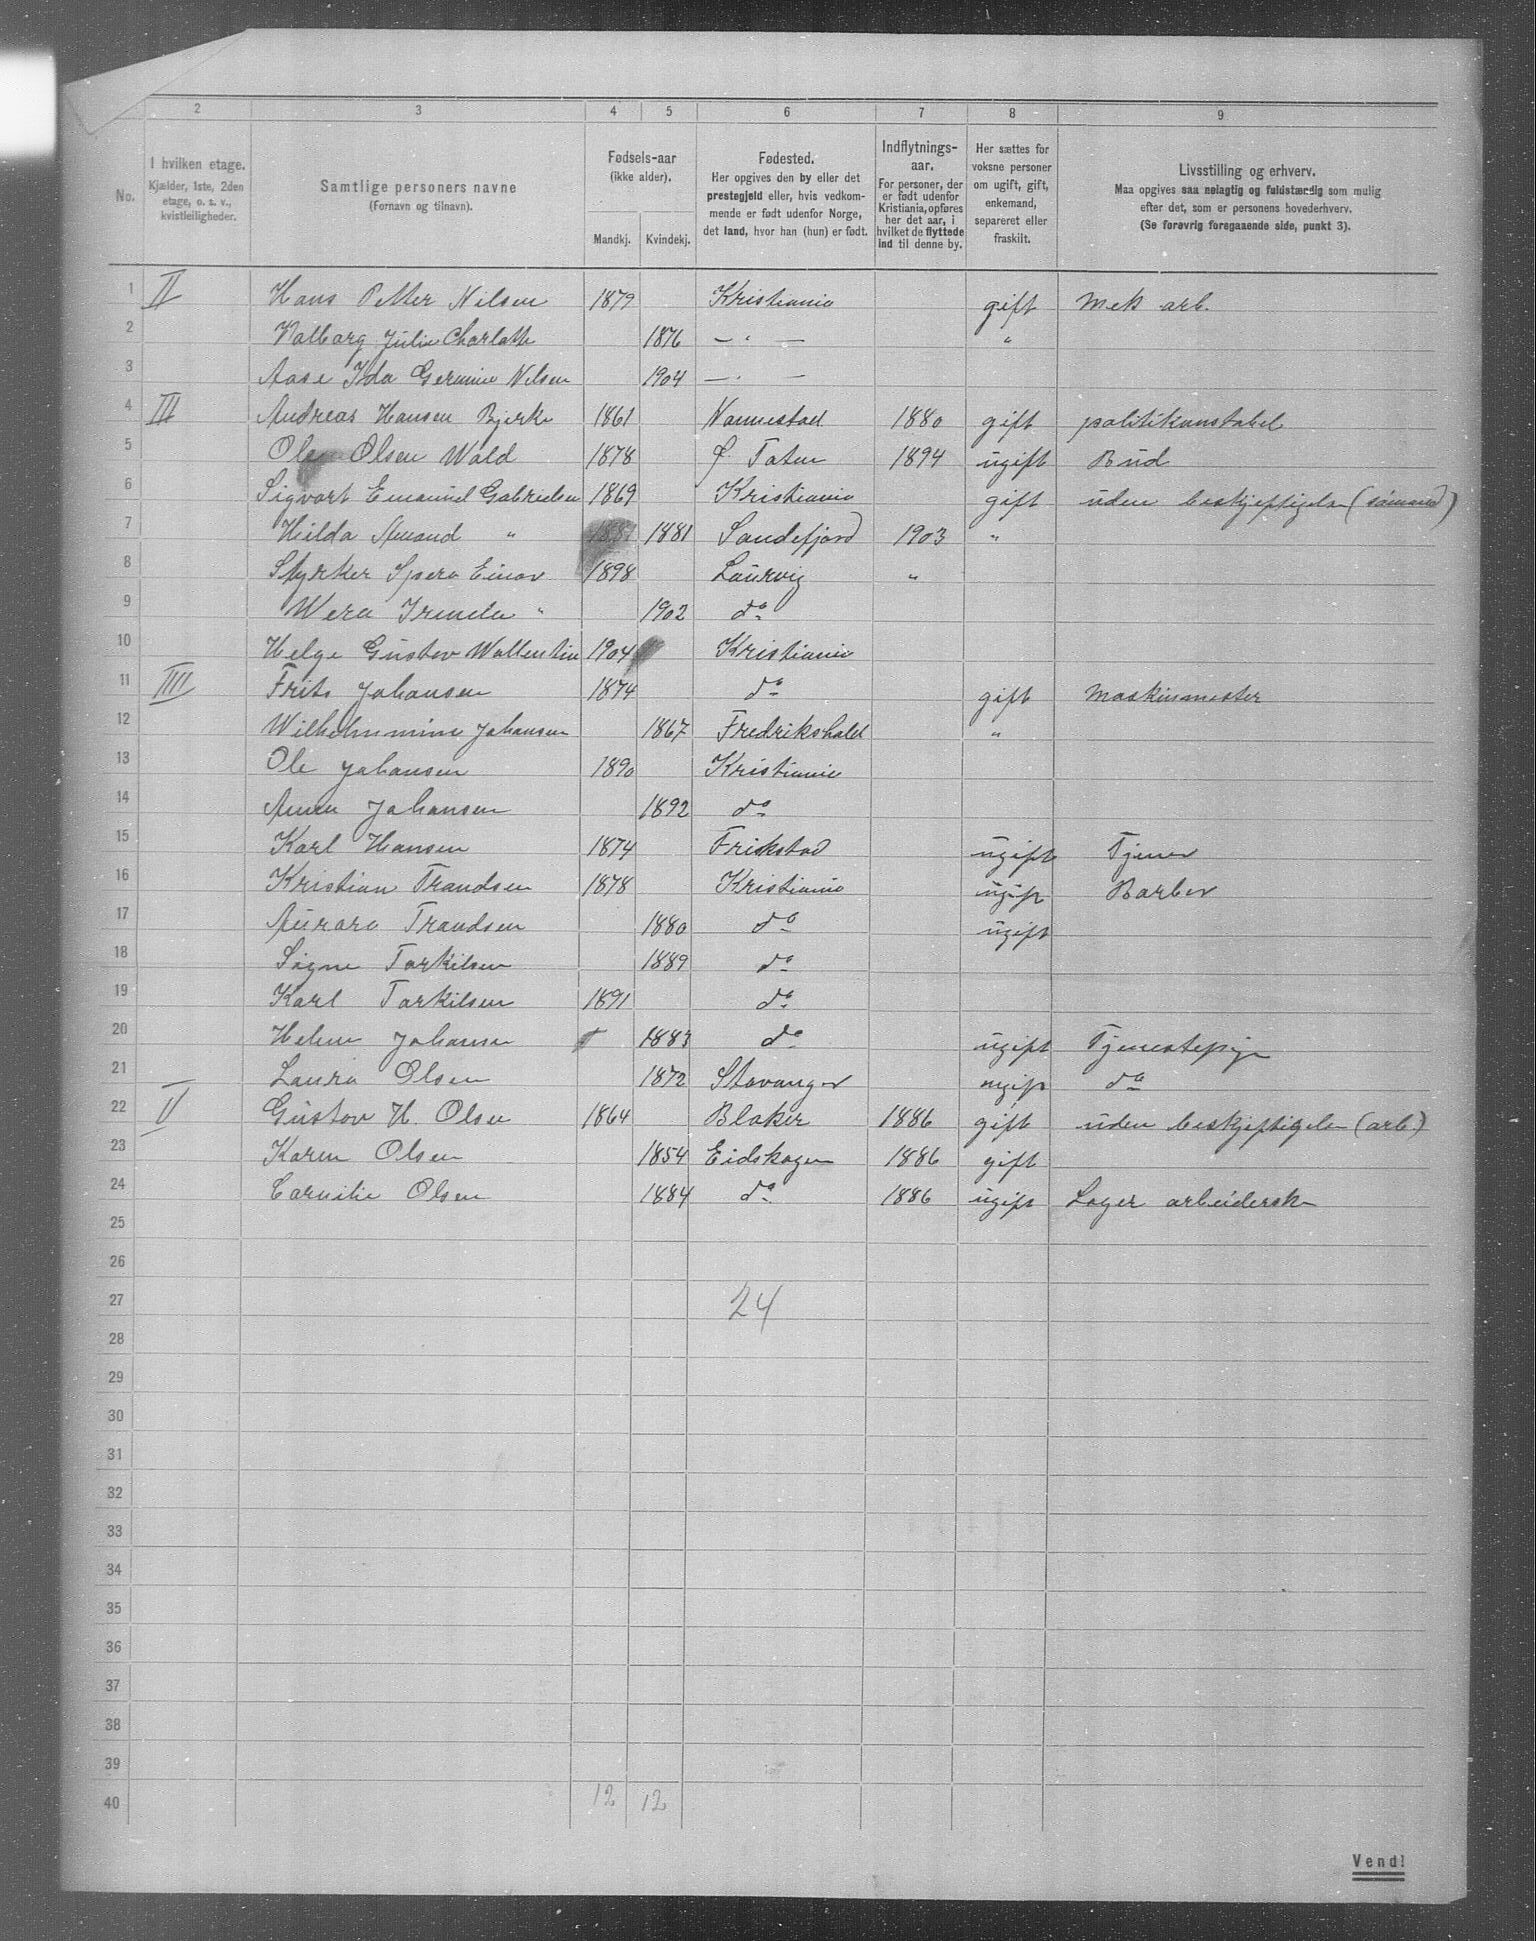 2 3 4 5 6 7 8 9
No. I hvilken etage. Kjælder, 1ste, 2den etage, o. s. v., kvistleiligheder.
Samtlige personers navne (Fornavn og tilnavn).
Fødsels-aar (ikke alder). Mandkj. Kvindekj.
Fødested. Her opgives den by eller det prestegjeld eller, hvis vedkommende er født udenfor Norge, det land, hvor han (hun) er født.
Indflytnings-aar. For personer, der er født udenfor Kristiania, opføres her det aar, i hvilket de flyttede ind til denne by.
Her sættes for voksne personer om ugift, gift, enkemand, separeret eller fraskilt.
Livsstilling og erhverv. Maa opgives saa nøiagtig og fuldstændig som mulig efter det, som er personens hovederhverv. (Se forøvrig foregaaende side, punkt 3).
1 II Hans Petter Nilsen 1879 Kristiania gift Mek arb.
2 Valborg Julie Charlotte 1876 — " — "
3 Aase Ida Germine Nilsen 1904 — " —
4 III Andreas Hansen Bjerke 1861 Nannestad 1880 gift politikonstabel
5 Olsen Wold 1878 Ø. Toten 1894 ugift Bud
6 Sigvart Emanuel Gabrielsen 1869 Kristiania gift uden beskjeftigelse (sømand)
7 Hilda Amand " 1881 1881 Sandefjord 1903 "
8 Styrker Spero Einar 1898 Laurvig "
9 Wera " 1902 do
10 Helge Gustav Wallentin 1904 Kristiania
11 IIII Frits Johansen 1874 do gift Maskinmester
12 Wilhelmmine Johansen 1867 Fredrikshald "
13 Ole Johansen 1890 Kristiania
14 Anna Johansen 1892 do
15 Karl Hansen 1874 Frikstad ugift Tjener
16 Kristian Trandsen 1878 Kristiania ugift Barber
17 Aurora Trandsen 1880 do ugift
18 Signe Torkilsen 1889 do
19 Karl Torkilsen 1891 do
20 Helene Johansen 1883 do ugift Tjenestepige
21 Laura Olsen 1872 Stavanger ugift do
22 V Gustav H. Olsen 1864 Blaker 1886 gift uden beskjeftigelse (arb)
23 Karen Olsen 1854 Eidskogen 1886 gift
24 Cornilie Olsen 1884 do 1886 ugift Lager arbeiderske
25
26
27 24
28
29
30
31
32
33
34
35
36
37
38
39
40 12 12
Vend!